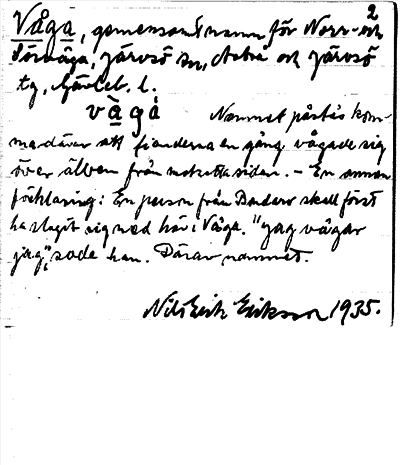 2
Våga, gemensamt namn för Norr- och
Sörvåga, Järvsö sn, Arbrå och Järvsö
tg, Gävleb. l.
v à g å Namnet påstås kom-
ma därav att fienderna en gång vågade sig
över älven från motsatta sidan. - En annan
förklaring: En person från skall först
ha slagit sig ned här i Våga. "Jag vågar
jag", sade han. Därav namnet.
Nils Erik Eriksson 1935.